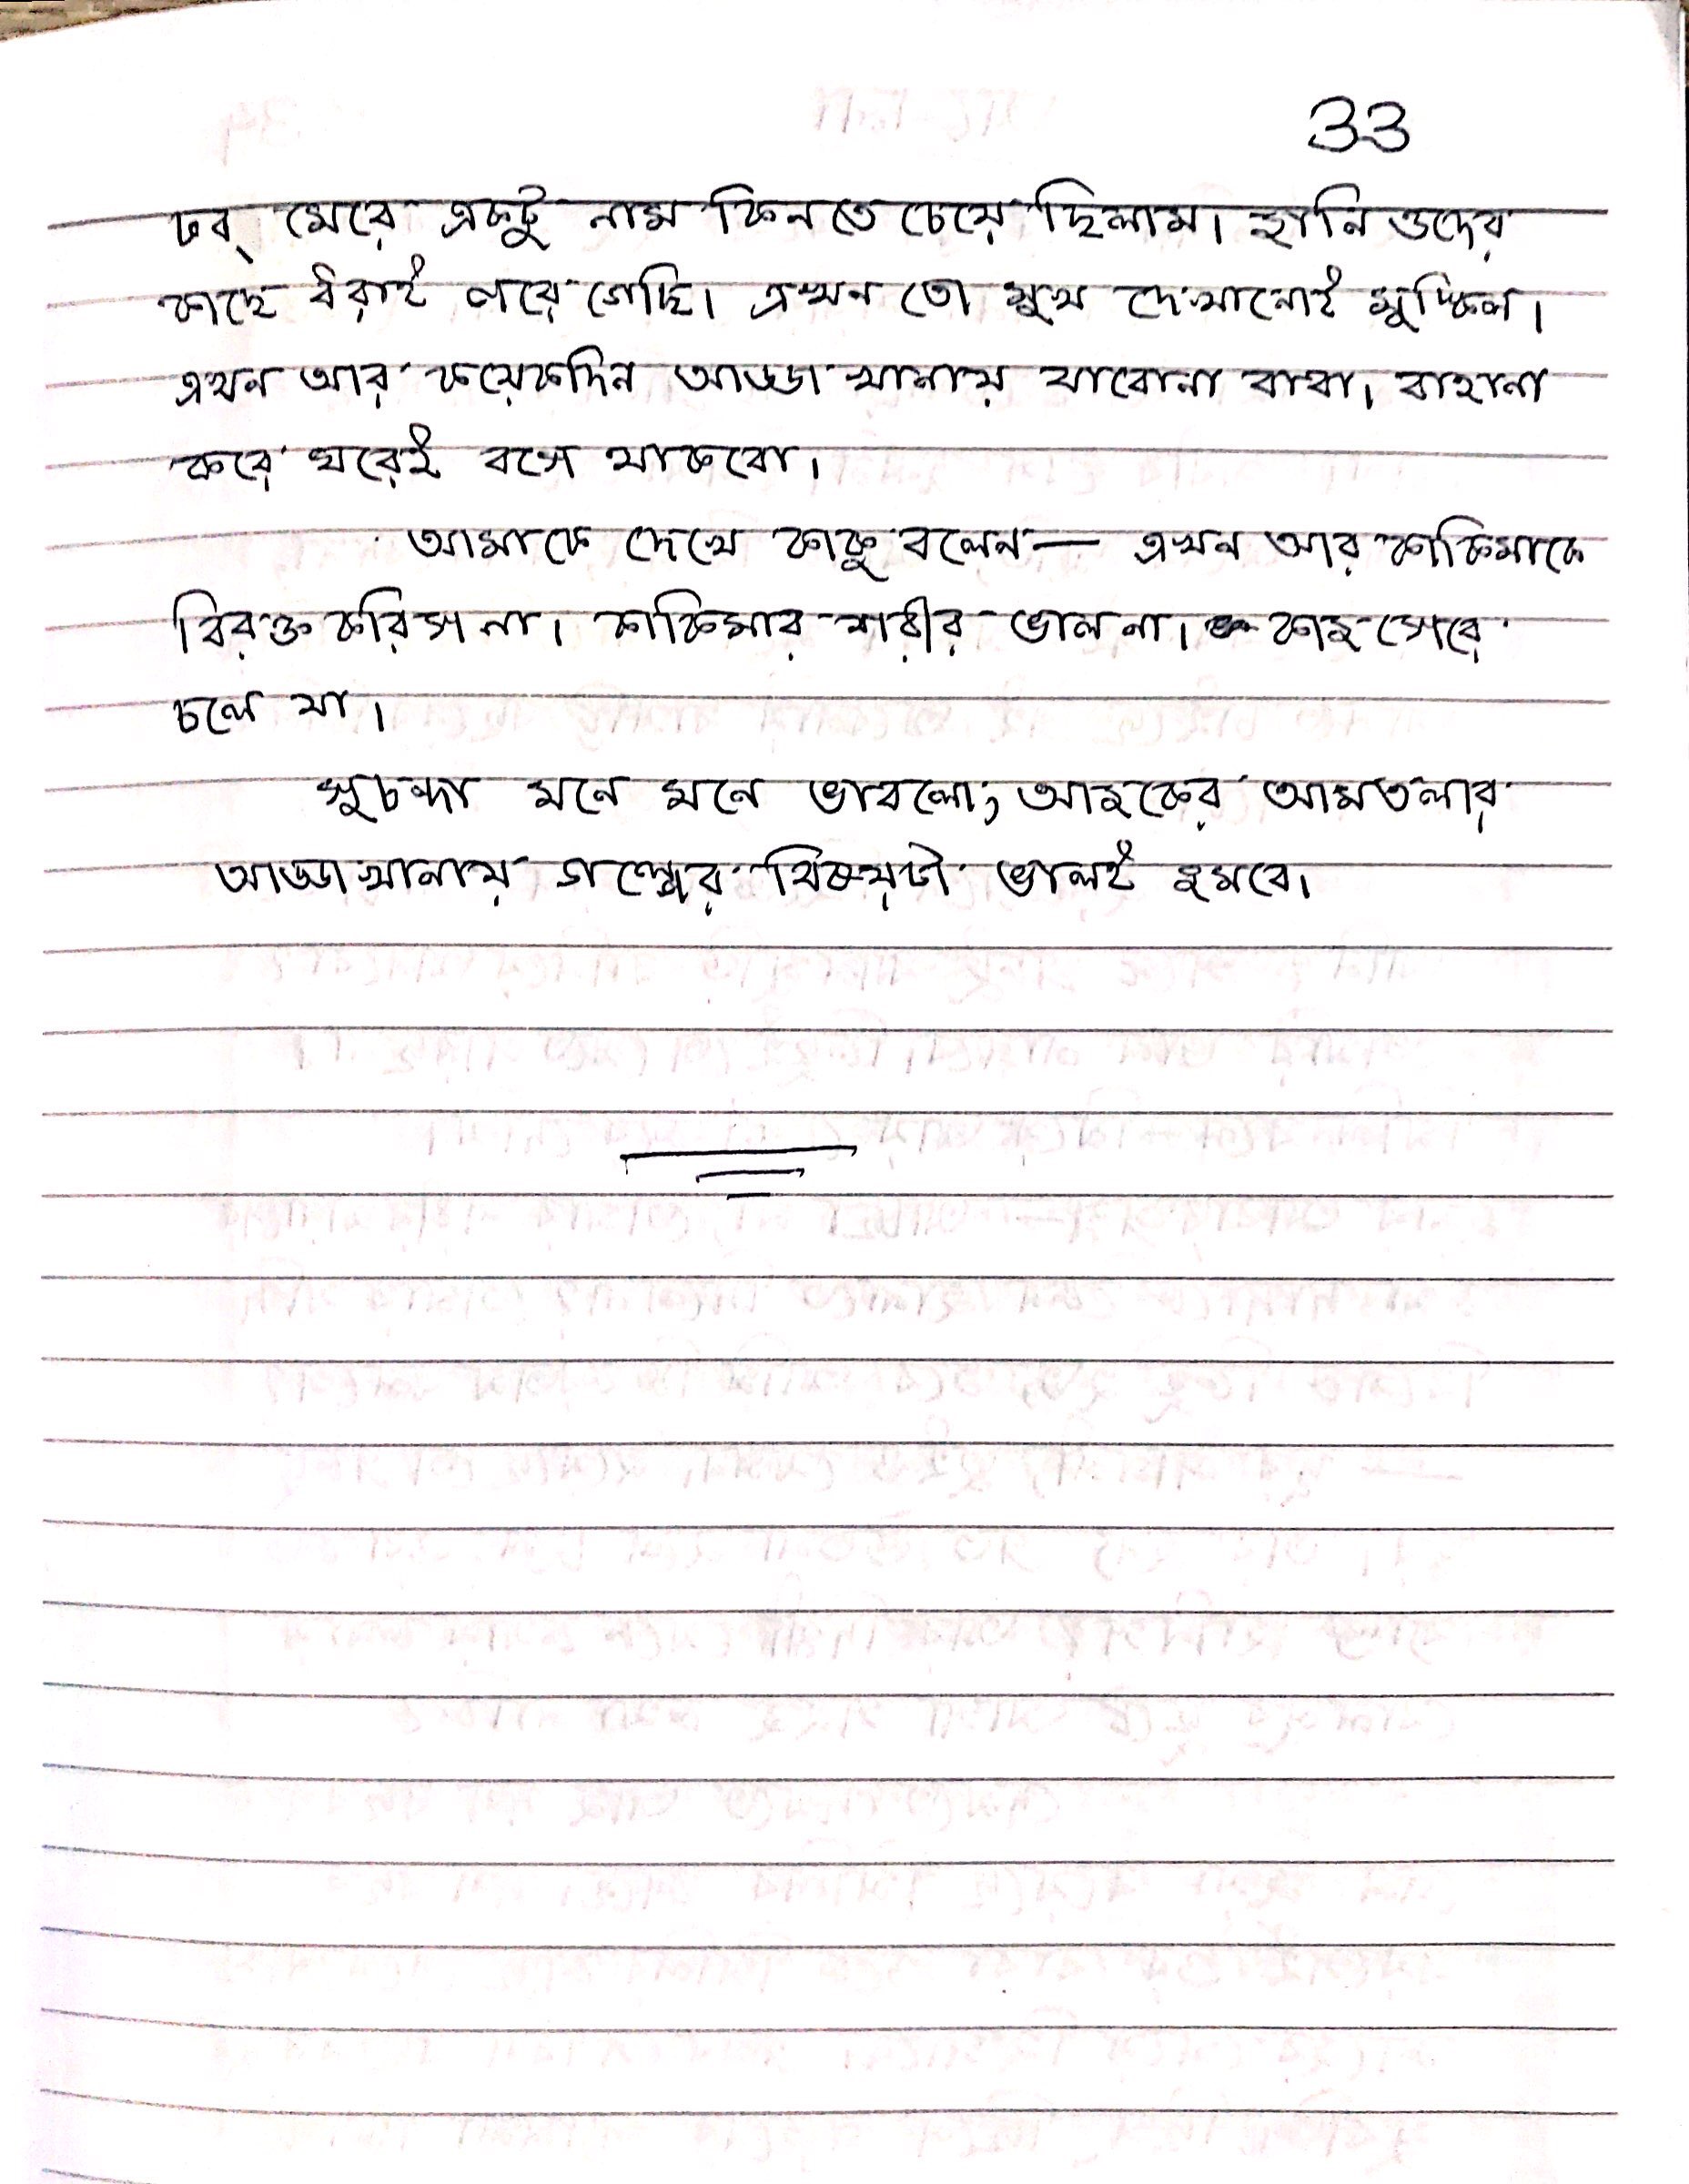 33
ঢব্ মেরে একটু নাম কিনতে চেয়ে ছিলাম। জানি ওদের
কাছে ধরাই পরে গেছি। এখন তো মুখ দেখানোই মুস্কিল।
এখন আর কয়েকদিন আড্ডা খানায় যাবোনা বাবা। বাহানা
করে ঘরেই বসে থাকবো।
আমাকে দেখে কাকু বলেন— এখন আর কাকিমাকে
বিরক্ত করিস না। কাকিমার শরীর ভাল না। কাজ সেরে
চলে যা।
সুচন্দা মনে মনে ভাবলো, আজকের আমতলার
আড্ডা খানায় গল্পের বিষয়টা ভালই জমবে।